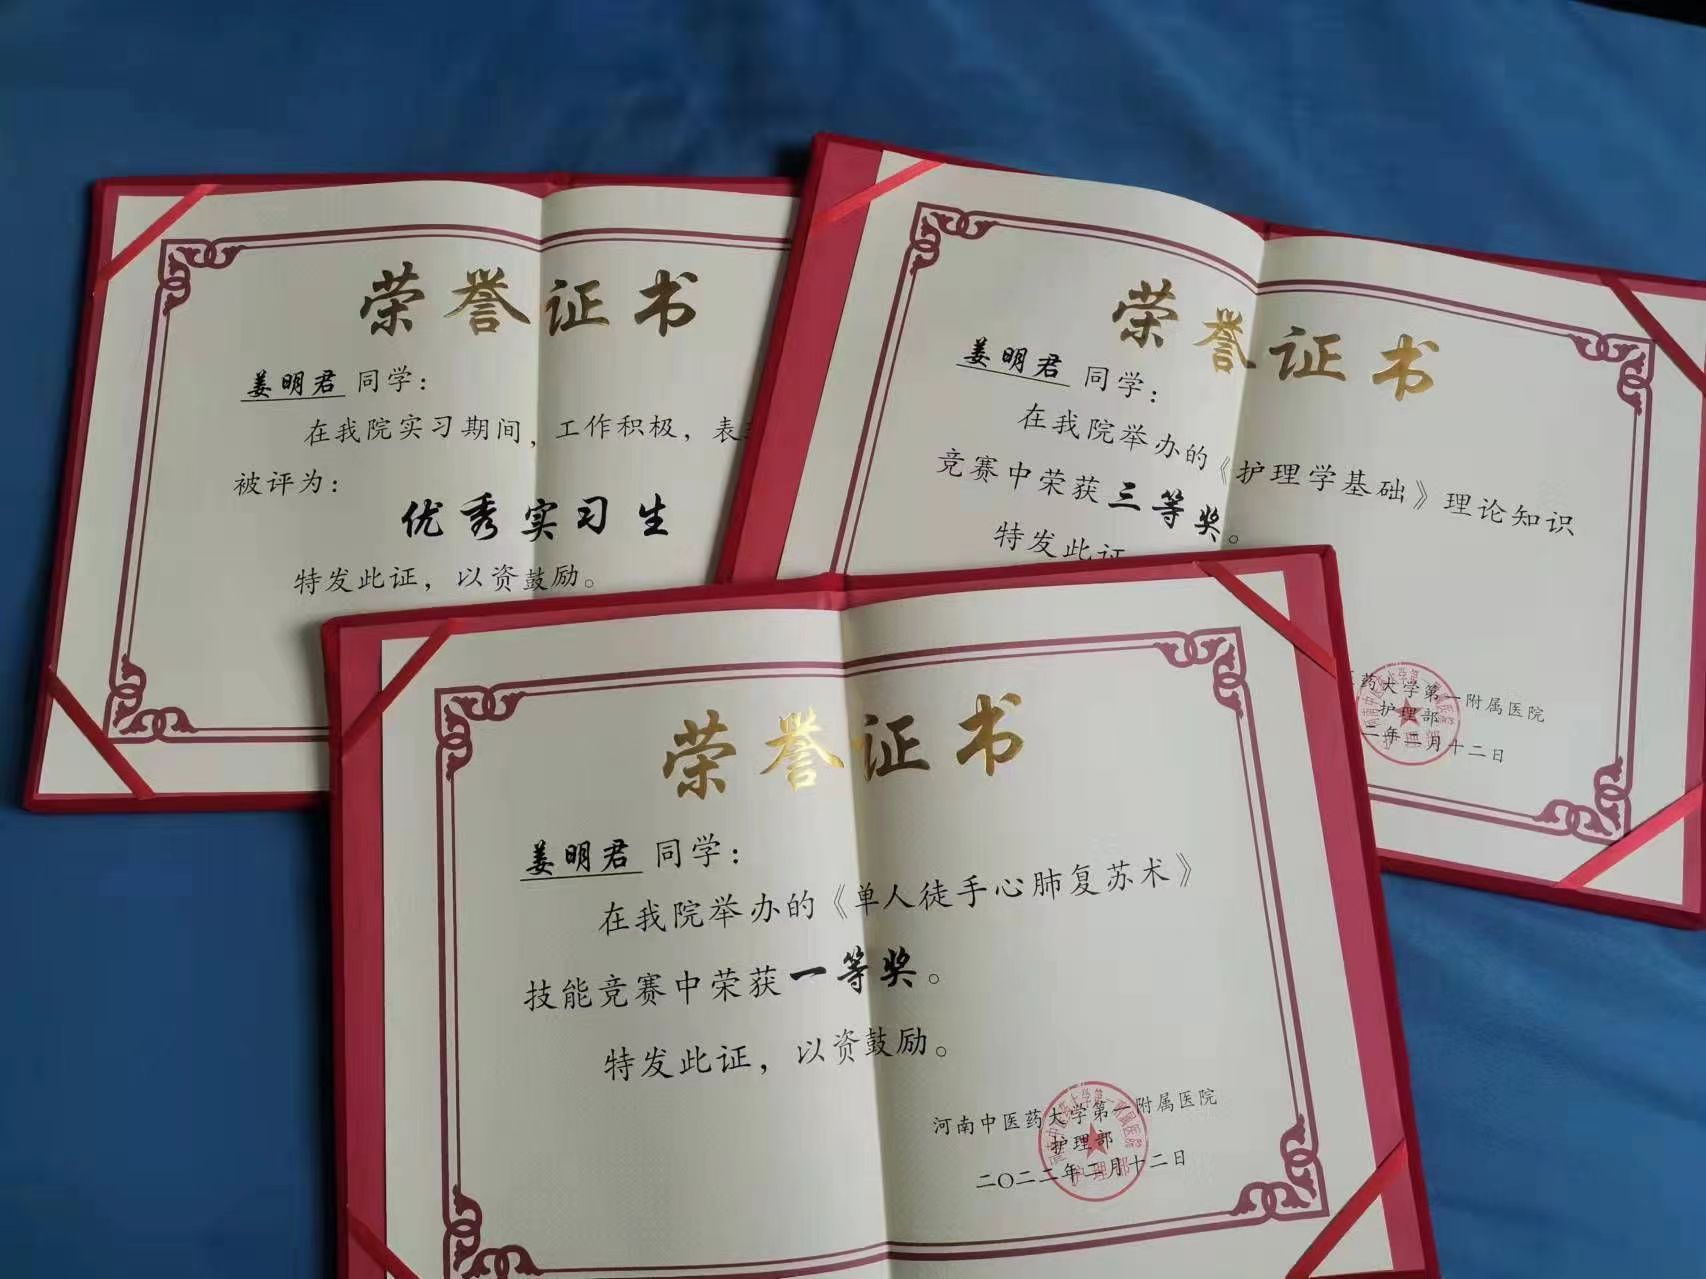 荣誉证书
姜明君 同学：
在我院实习期间，工作积极，表
被评为：
优秀实习生
特发此证，以资鼓励。
荣誉证书
姜明君 同学：
在我院举办的《护理学基础》理论知识
竞赛中荣获三等奖。
特发此证
药大学第一附属医院
护理部
二年二月十二日
荣誉证书
姜明君 同学：
在我院举办的《单人徒手心肺复苏术》
技能竞赛中荣获一等奖。
特发此证，以资鼓励。
河南中医药大学第一附属医院
护理部
二〇二二年二月十二日